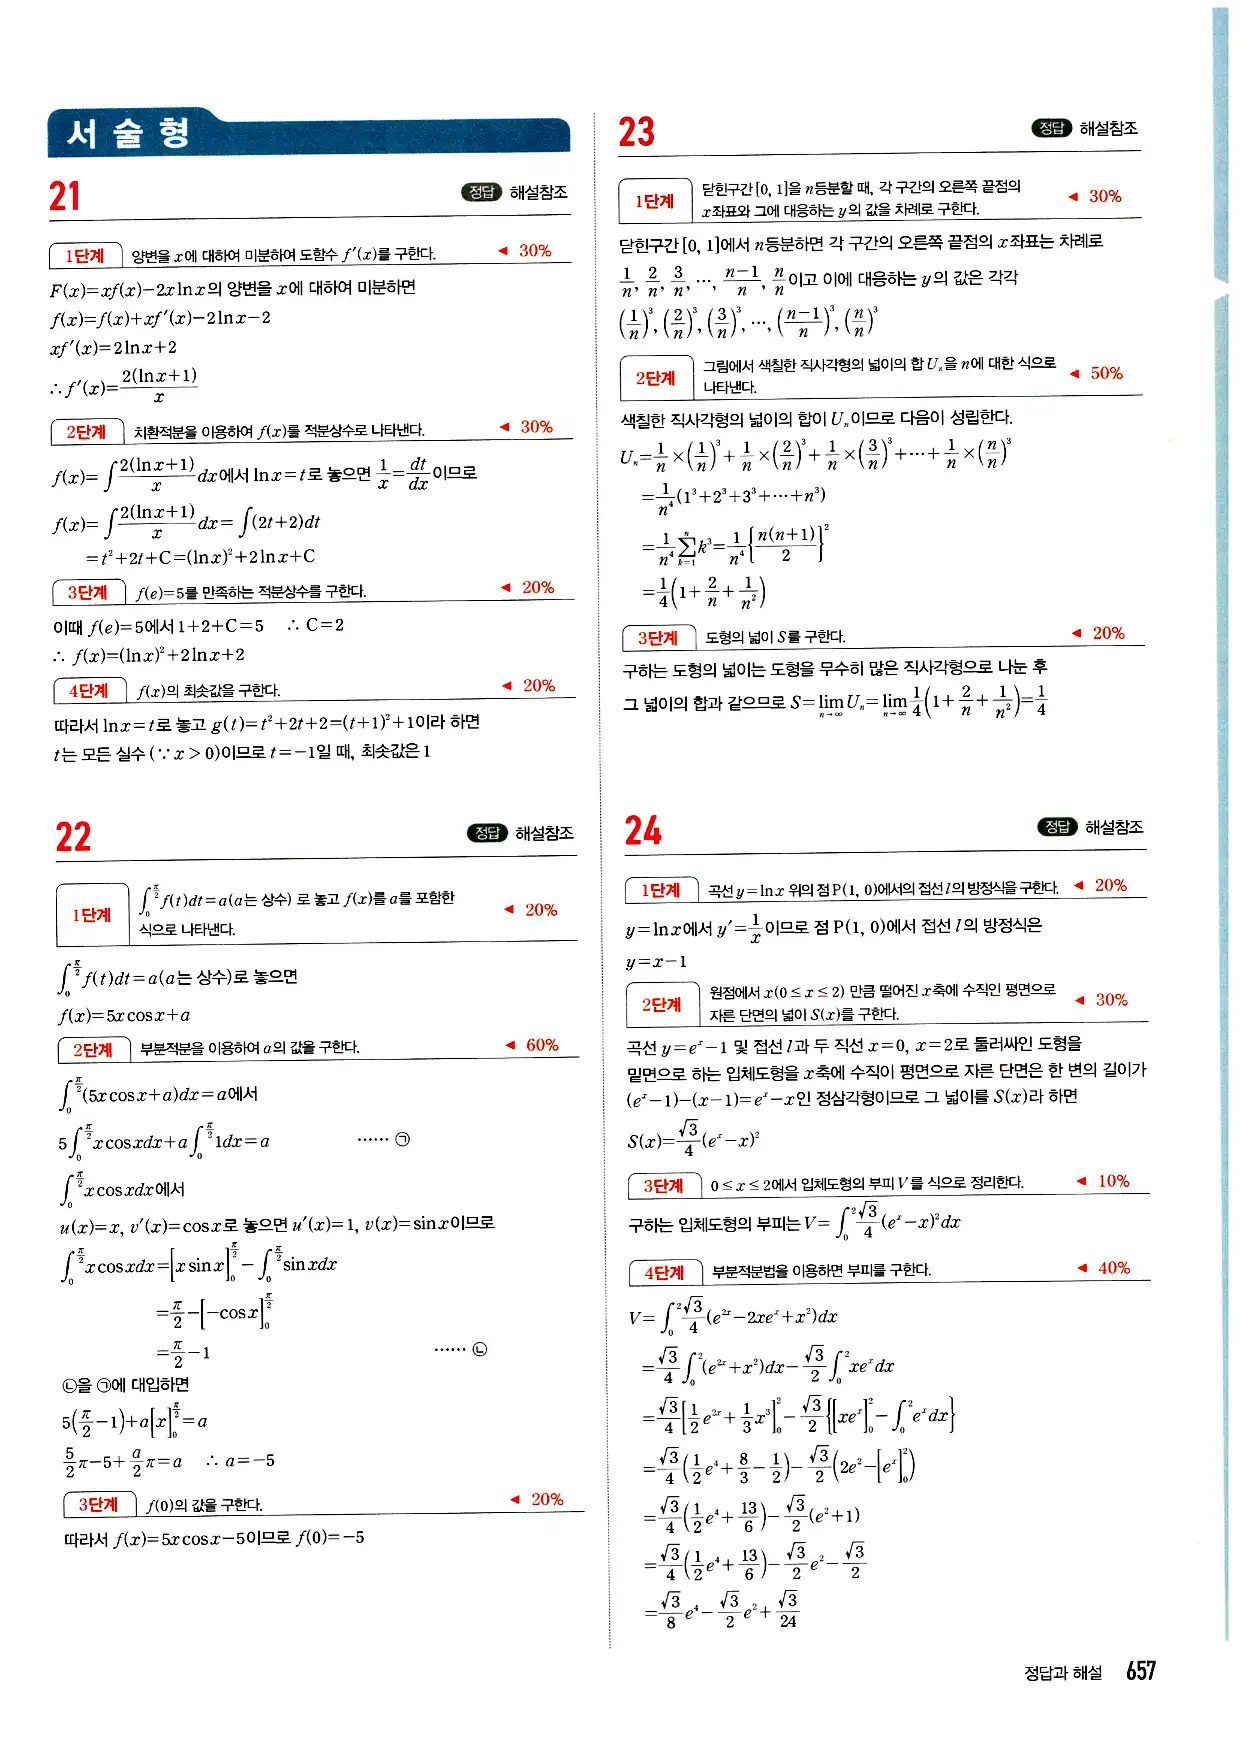 서술형
21
정답 해설참조
1단계 양변을 x에 대하여 미분하여 도함수 f′(x)를 구한다. ◀ 30%
F(x)=xf(x)−2x ln x의 양변을 x에 대하여 미분하면
f(x)=f(x)+xf′(x)−2ln x−2
xf′(x)=2ln x+2
∴ f′(x)=2(ln x+1)/x
2단계 치환적분을 이용하여 f(x)를 적분상수로 나타낸다. ◀ 30%
f(x)=∫2(ln x+1)/x dx에서 ln x=t로 놓으면 1/x=dt/dx이므로
f(x)=∫2(ln x+1)/x dx=∫(2t+2)dt
=t²+2t+C=(ln x)²+2ln x+C
3단계 f(e)=5를 만족하는 적분상수를 구한다. ◀ 20%
이때 f(e)=5에서 1+2+C=5 ∴ C=2
∴ f(x)=(ln x)²+2ln x+2
4단계 f(x)의 최솟값을 구한다. ◀ 20%
따라서 ln x=t로 놓고 g(t)=t²+2t+2=(t+1)²+1이라 하면
t는 모든 실수 (∵ x>0)이므로 t=−1일 때, 최솟값은 1
22
정답 해설참조
1단계 ∫₀^(π/2) f(t)dt=a(a는 상수) 로 놓고 f(x)를 a를 포함한
식으로 나타낸다. ◀ 20%
∫₀^(π/2) f(t)dt=a(a는 상수)로 놓으면
f(x)=5x cos x+a
2단계 부분적분을 이용하여 a의 값을 구한다. ◀ 60%
∫₀^(π/2)(5x cos x+a)dx=a에서
5∫₀^(π/2) x cos x dx+a∫₀^(π/2) 1dx=a ······ ㉠
∫₀^(π/2) x cos x dx에서
u(x)=x, v′(x)=cos x로 놓으면 u′(x)=1, v(x)=sin x이므로
∫₀^(π/2) x cos x dx=[x sin x]₀^(π/2)−∫₀^(π/2) sin x dx
=π/2−[−cos x]₀^(π/2)
=π/2−1 ······ ㉡
㉡을 ㉠에 대입하면
5(π/2−1)+a[x]₀^(π/2)=a
5/2π−5+a/2π=a ∴ a=−5
3단계 f(0)의 값을 구한다. ◀ 20%
따라서 f(x)=5x cos x−5이므로 f(0)=−5
23
정답 해설참조
1단계 닫힌구간 [0, 1]을 n등분할 때, 각 구간의 오른쪽 끝점의
x좌표와 그에 대응하는 y의 값을 차례로 구한다. ◀ 30%
닫힌구간 [0, 1]에서 n등분하면 각 구간의 오른쪽 끝점의 x좌표는 차례로
1/n, 2/n, 3/n, ···, (n−1)/n, n/n이고 이에 대응하는 y의 값은 각각
(1/n)³, (2/n)³, (3/n)³, ···, ((n−1)/n)³, (n/n)³
2단계 그림에서 색칠한 직사각형의 넓이의 합 Uₙ을 n에 대한 식으로
나타낸다. ◀ 50%
색칠한 직사각형의 넓이의 합이 Uₙ이므로 다음이 성립한다.
Uₙ=1/n×(1/n)³+1/n×(2/n)³+1/n×(3/n)³+···+1/n×(n/n)³
=1/n⁴(1³+2³+3³+···+n³)
=1/n⁴ ∑_(k=1)^n k³=1/n⁴{n(n+1)/2}²
=1/4(1+2/n+1/n²)
3단계 도형의 넓이 S를 구한다. ◀ 20%
구하는 도형의 넓이는 도형을 무수히 많은 직사각형으로 나눈 후
그 넓이의 합과 같으므로 S=lim_(n→∞) Uₙ=lim_(n→∞) 1/4(1+2/n+1/n²)=1/4
24
정답 해설참조
1단계 곡선 y=ln x 위의 점 P(1, 0)에서의 접선 l의 방정식을 구한다. ◀ 20%
y=ln x에서 y′=1/x이므로 점 P(1, 0)에서 접선 l의 방정식은
y=x−1
2단계 원점에서 x(0≤x≤2) 만큼 떨어진 x축에 수직인 평면으로
자른 단면의 넓이 S(x)를 구한다. ◀ 30%
곡선 y=eˣ−1 및 접선 l과 두 직선 x=0, x=2로 둘러싸인 도형을
밑면으로 하는 입체도형을 x축에 수직이 평면으로 자른 단면은 한 변의 길이가
(eˣ−1)−(x−1)=eˣ−x인 정삼각형이므로 그 넓이를 S(x)라 하면
S(x)=√3/4(eˣ−x)²
3단계 0≤x≤2에서 입체도형의 부피 V를 식으로 정리한다. ◀ 10%
구하는 입체도형의 부피는 V=∫₀² √3/4(eˣ−x)²dx
4단계 부분적분법을 이용하면 부피를 구한다. ◀ 40%
V=∫₀² √3/4(e²ˣ−2xeˣ+x²)dx
=√3/4∫₀²(e²ˣ+x²)dx−√3/2∫₀² xeˣdx
=√3/4[1/2e²ˣ+1/3x³]₀²−√3/2{[xeˣ]₀²−∫₀² eˣdx}
=√3/4(1/2e⁴+8/3−1/2)−√3/2(2e²−[eˣ]₀²)
=√3/4(1/2e⁴+13/6)−√3/2(e²+1)
=√3/4(1/2e⁴+13/6)−√3/2e²−√3/2
=√3/8e⁴−√3/2e²+√3/24
정답과 해설 657